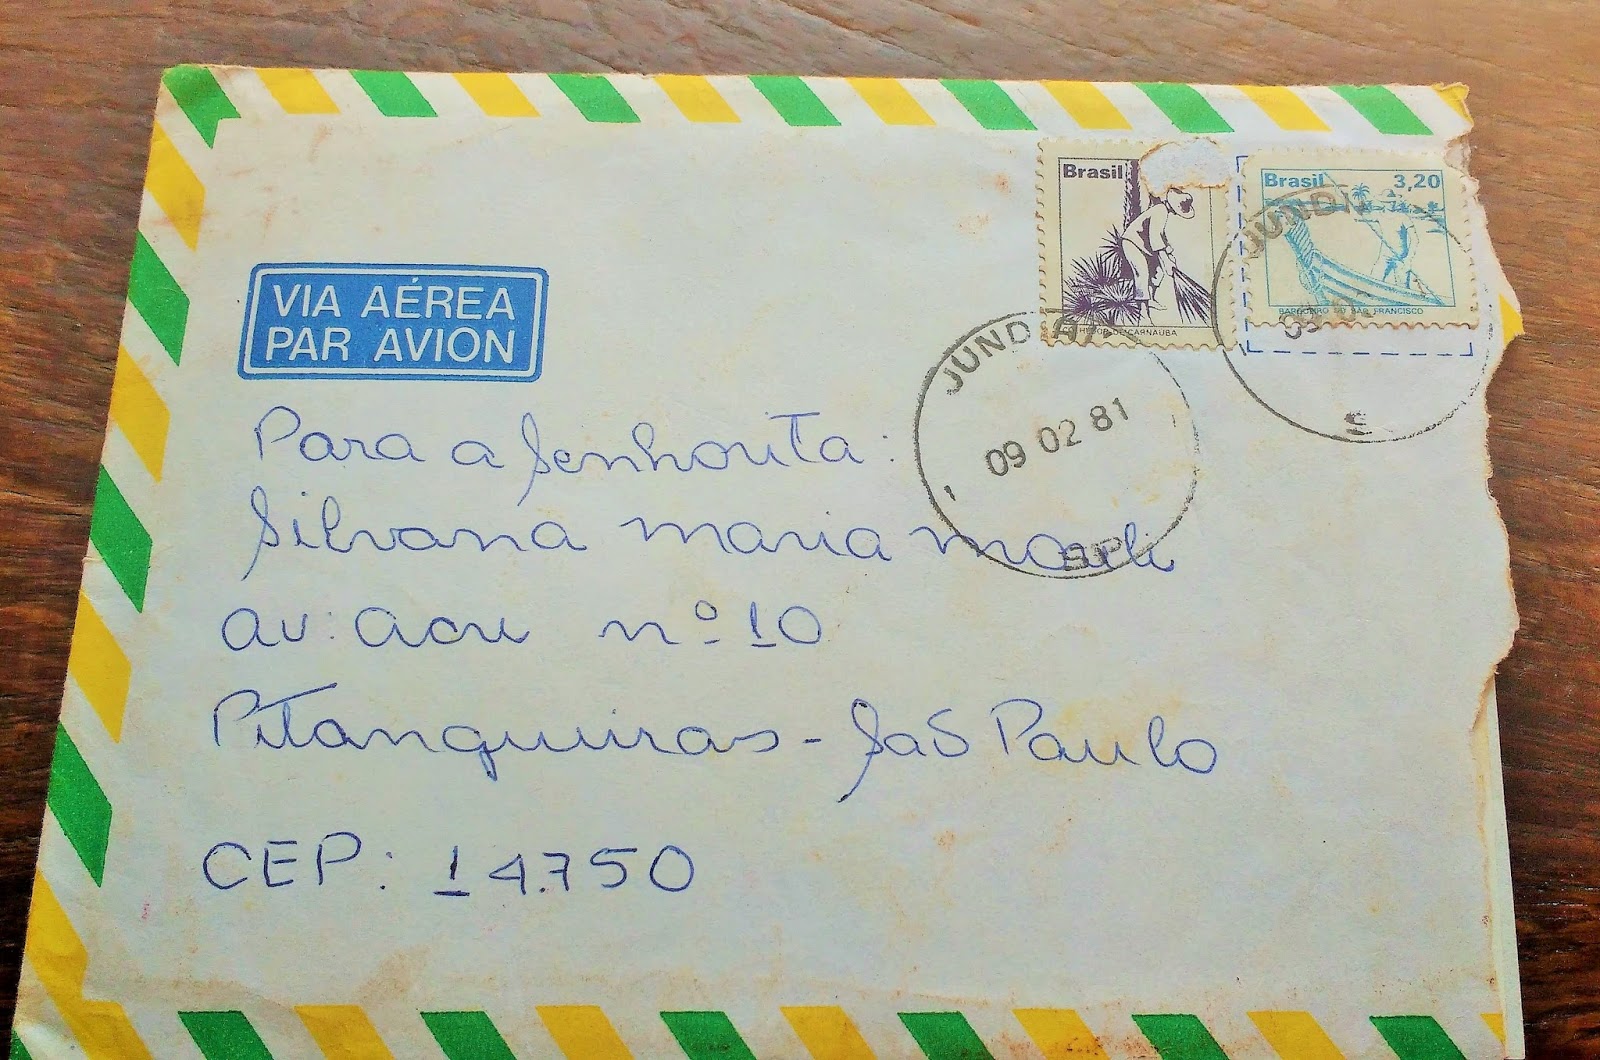 Brasil
Brasil 3,20
BARQUEIRO DO SÃO FRANCISCO
DE CARNAUBA
JUNDIAÍ
09 02 81
SP
JUNDI
VIA AÉREA
PAR AVION
Para a Senhorita:
Silvana maria
av: nº 10
Pitangueiras - São Paulo
CEP: 14.750